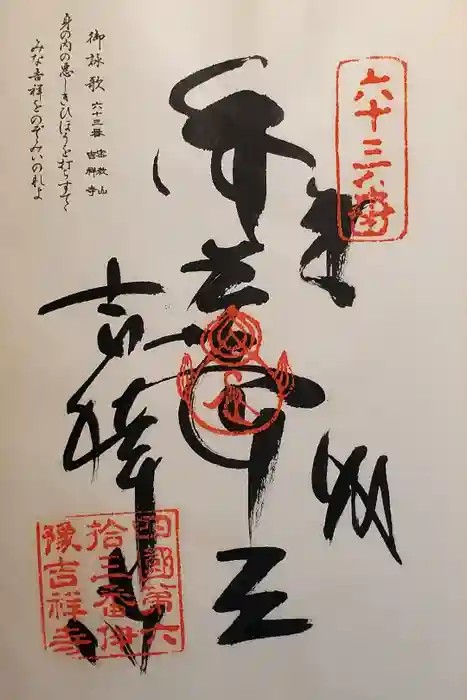 六十三番
奉納
御詠歌 六十三番 密教山 吉祥寺
身の内の悪しきひほうを打ちすてゝ
みな吉祥をのぞみいのれよ
吉祥寺
四國第六
拾三番伊
豫吉祥寺